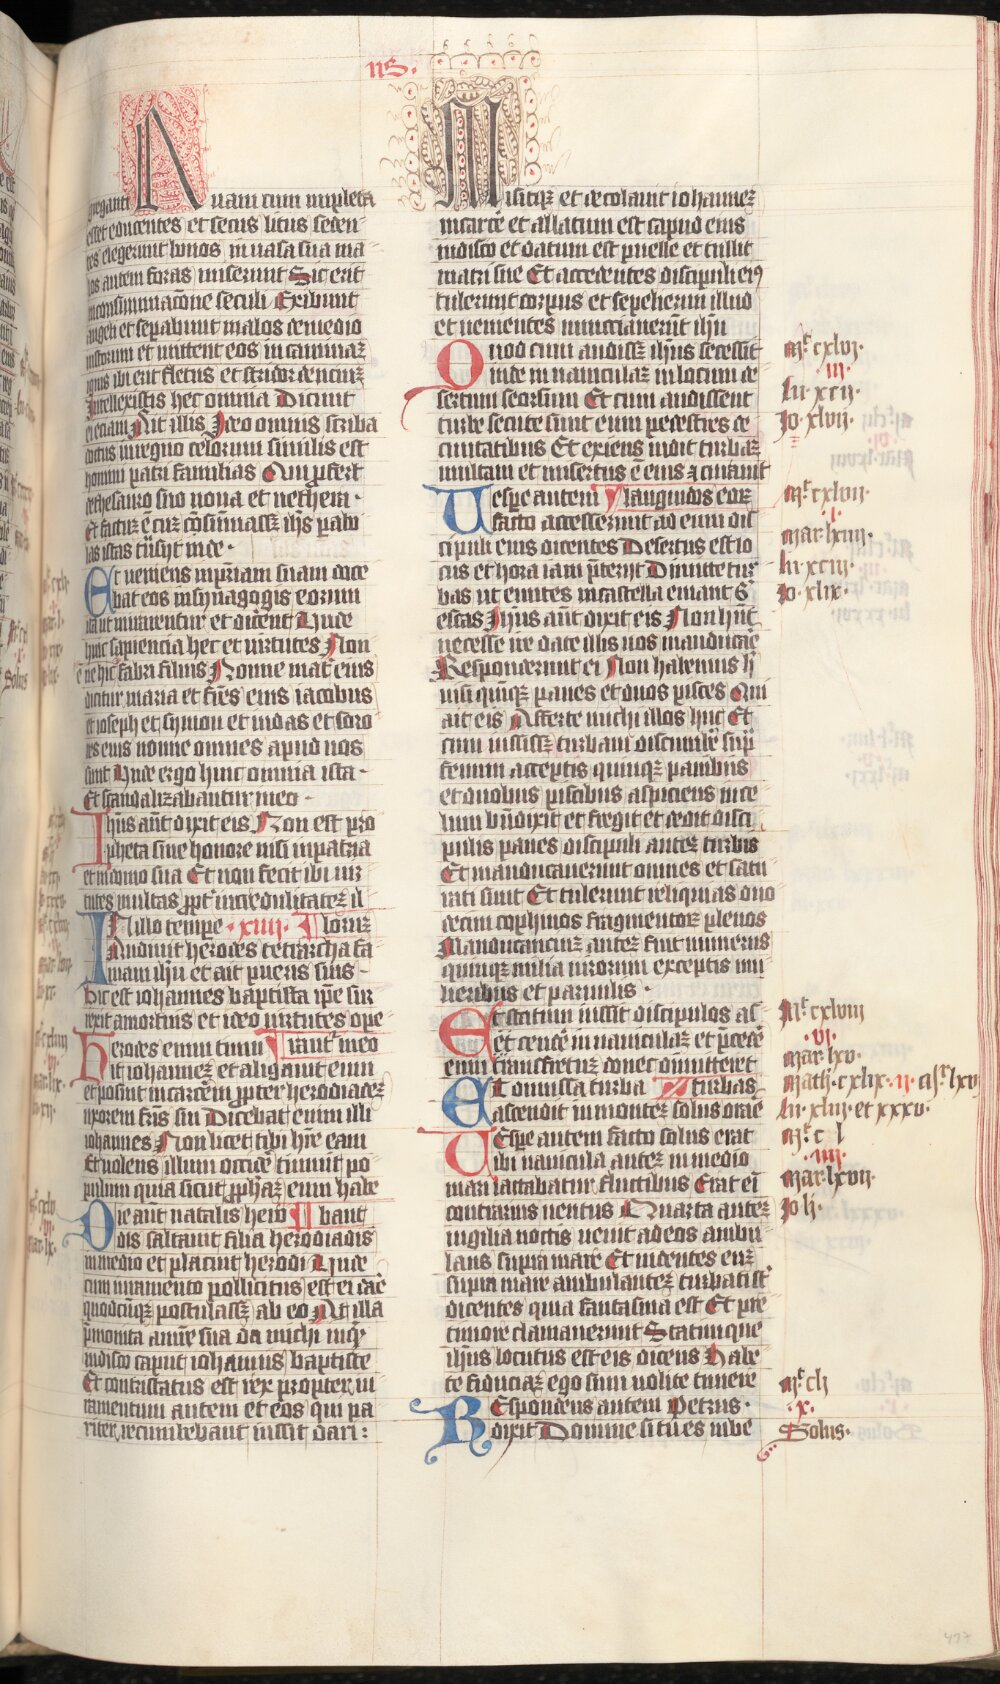 us.
greganti Quam cum impleta
esset educentes et secus litus seden
tes elegerunt bonos in vasa sua ma
los autem foras miserunt Sic erit
in consummacõne seculi Exibunt
angeli et sepabunt malos de medio
iustorum et mittent eos in caminũ
ignis ibi erit fletus et stridor denciũ
Intellexistis hec omnia Dicunt
ei eciam Ait illis Ideo omnis scriba
doctus in regno celorum similis est
homini patri familias Qui pfert
de thesauro suo noua et vethera ·
Et factũ ẽ cũ cõsũmassꝫ ihs pabo
las istas tñsijt inde ·
Et veniens in pñam suam doce
bat eos in synagogis eorum
ita ut mirarentur et dicent Unde
huic sapiencia hec et virtutes Non
ẽ ne hic fabri filius Nonne mat̾ eius
dicitur maria et fr̃es eius iacobus
et ioseph et symon et iudas et soro
res eius nonne omnes apud nos
sunt Unde ergo huic omnia ista ·
Et scandalizabantur in eo ·
Ihũs aũt dixit eis Non est pro
pheta sine honore nisi in patria
et in domo sua Et non fecit ibi vir
tutes multas ꝓpt̾ incredulitatẽ il
In illo tempe · xiiii · lorũ
Audiuit herodes tetrarcha fa
mam ihũ et ait pueris suis
hic est iohannes baptista ipẽ sur
rexit a mortuis et ideo virtutes ope
Herodes enim tenu rant̃ in eo
it iohannẽ et aligauit eum
et posuit in carcẽm ꝓpter herodiadẽ
uxorem fr̃is sui Dicebat enim illi
iohannes Non licet tibi hr̃e eam
Et volens illum occidẽ timuit po
pulum quia sicut ꝓphãꝫ eum habe
Die aũt natalis hero bant
dis saltauit filia herodiadis
in medio et placuit herodi Unde
cum iuramento pollicitus est ei dar̃e
quodcũqꝫ postulassꝫ ab eo At illa
p̃monita a mr̃e sua da michi inq̃
in disco caput iohannis baptiste
Et contristatus est rex propter iu
ramentum autem et eos qui pa
riter recumbebant iussit dari :
Misitqꝫ et decolauit iohannẽ
in carcẽ et allatum est capud eius
in disco et datum est puelle et tulit
matri sue Et accedentes discipuli eiꝰ
tulerunt corpus et sepelierunt illud
et venientes nunciauerũt ihũ
Quod cum audissꝫ ihũs secessit
inde in nauiculaꝫ in locum de
sertum seorsum Et cum audissent
turbe secute sunt eum pedestres de
ciuitatibus Et exiens vidit turbaꝫ
multam et misertus ẽ eius ⁊ curauit
Uespe autem languidos eoꝝ
facto accesserunt ad eum dis
cipuli eius dicentes Desertus est lo
cus et hora iam p̃terijt Dimitte tur
bas ut euntes in castella emant s̃
escas Ihũs aũt dixit eis Non hñt
necesse ire date illis vos manducar̃e
Responderunt ei Non habemus h̃
nisi quinqꝫ panes et duos pisces Qui
ait eis Afferte michi illos huc Et
cum iussissꝫ turbam discumbe sup̃
fenum acceptis quinqꝫ panibus
et duobus piscibus aspiciens in ce
lum bñdixit et fregit et dedit disci
pulis panes discipuli autẽ turbis
Et manducauerunt omnes et satu
rati sunt Et tulerunt reliquias duo
decim cophinos fragmentoꝝ plenos
Manducanciũ autẽ fuit numerus
quinqꝫ milia virorum exceptis mu
lieribus et paruulis ·
Et statim iussit discipulos as
cẽdere in nauiculaꝫ et p̃cede
eum trans fretũ donec dimitteret
Et dimissa turba turbas
ascendit in montẽ solus orar̃e
Uespe autem facto solus erat
ibi nauicula autẽ in medio
mari iactabatur fluctibus Erat ei̾
contrarius ventus Quarta autẽ
vigilia noctis venit ad eos ambu
lans supra mare Et videntes euꝫ
supra mare ambulantẽ turbati st̃
dicentes quia fantasma est Et pre
timore clamauerunt Statimque
ihũs locutus est eis dicens Habe
te fiduciaꝫ ego sum nolite timere
Respondens autem Petrus ·
dixit Domine si tu es iube
mͭ cxlvi·
iii·
lu· xcii·
Jo· xlvii·
mͭ cxlvii·
i·
mar· lxiiii·
lu· xciii·
Jo· xlix·
mͭ cxlviii
vi·
mar· lxv·
math· cxlix· ii· mͬ lxvi
lu· xliii· et xxxv·
mͭ c l
iiii·
mar· lxvii·
Jo li·
mͭ cli
x·
Solus·
477